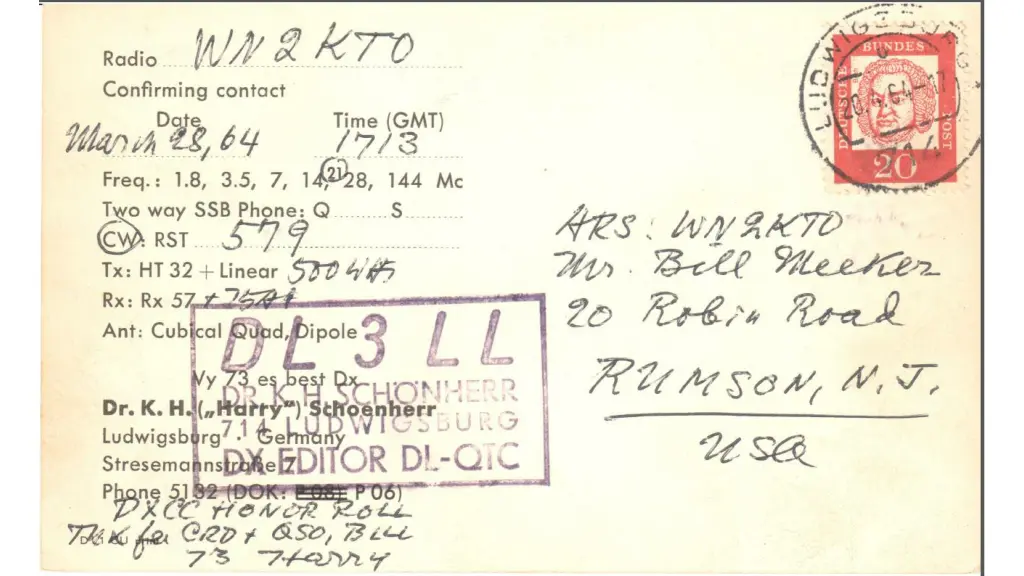 Radio WN2KTO
Confirming contact
Date Time (GMT)
March 28, 64 1713
Freq.: 1.8, 3.5, 7, 14, 21 28, 144 Mc
Two way SSB Phone: Q S
CW: RST 579
Tx: HT 32 + Linear 500
Rx: Rx 57 + 75A1
Ant: Cubical Quad, Dipole
Vy 73 es best Dx
Dr. K. H. („Harry") Schoenherr
Ludwigsburg · Germany
Stresemannstraße 7
Phone 5132 (DOK: P 08) P 06)
DXCC HONOR ROLL
TNX for CRD + QSO, BILL
73 Harry
DL3LL
DR K H SCHÖNHERR
714 LUDWIGSBURG
DX EDITOR DL-QTC
LUDWIGSBURG
20.4.64-17
714
DEUTSCHE BUNDESPOST
20
ARS: WN2KTO
Mr. Bill Meeker
20 Robin Road
RUMSON, N.J.
USA